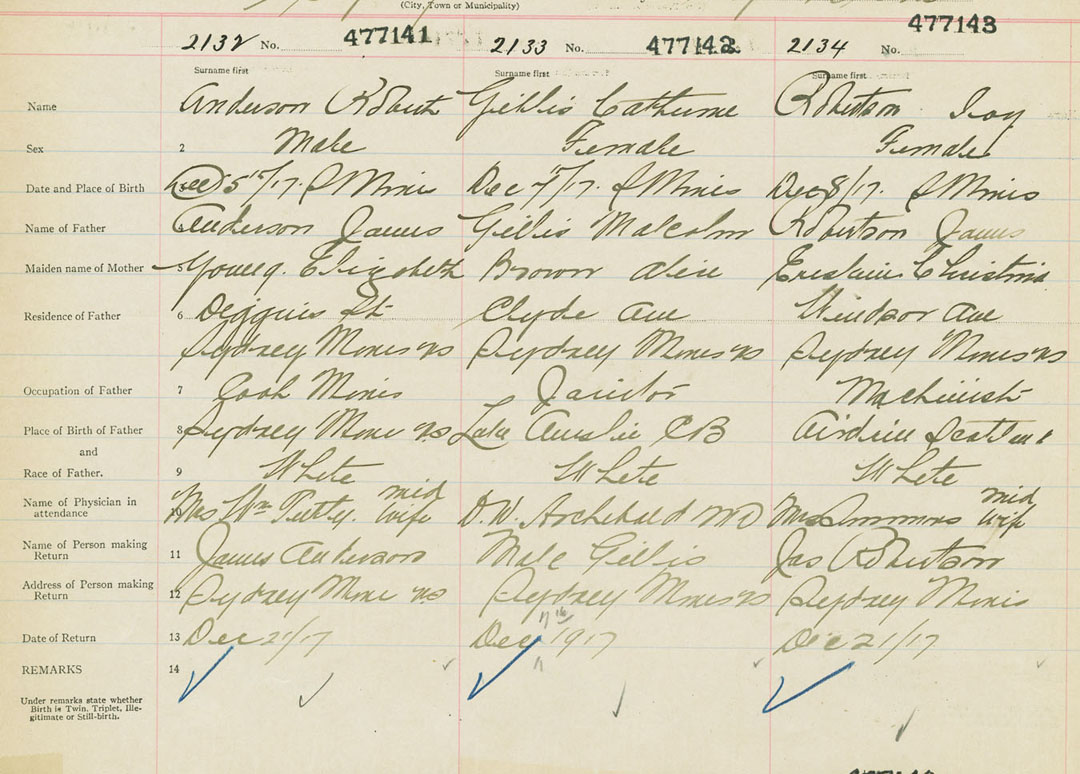 (City, Town or Municipality)
2132 No. 477141 2133 No. 477142 2134 No. 477143
Surname first Surname first Surname first
Name Anderson Robert Gillis Catherine Robertson Ivy
Sex 2 Male Female Female
Date and Place of Birth Dec 5/17. S Mines Dec 7/17. S Mines Dec 8/17. S Mines
Name of Father Anderson James Gillis Malcolm Robertson James
Maiden name of Mother 5 Young. Elizabeth Brown Alice Erskine Christina
Residence of Father 6 St Clyde Ave Windsor Ave
Sydney Mines NS Sydney Mines NS Sydney Mines NS
Occupation of Father 7 Janitor Machinist
Place of Birth of Father 8 Sydney Mines NS Lake Ainslie CB Airdrie Scotland
and
Race of Father. 9 White White White
Name of Physician in mid mid
attendance 10 Mrs Wm Tutty. wife D. W. Archibald MD Mrs Simmons wife
Name of Person making
Return 11 James Anderson Malc Gillis Jas Robertson
Address of Person making
Return 12 Sydney Mines NS Sydney Mines NS Sydney Mines
17th
Date of Return 13 Dec 21/17 Dec 1917 Dec 21/17
REMARKS 14
Under remarks state whether
Birth is Twin, Triplet, Ille-
gitimate or Still-birth.